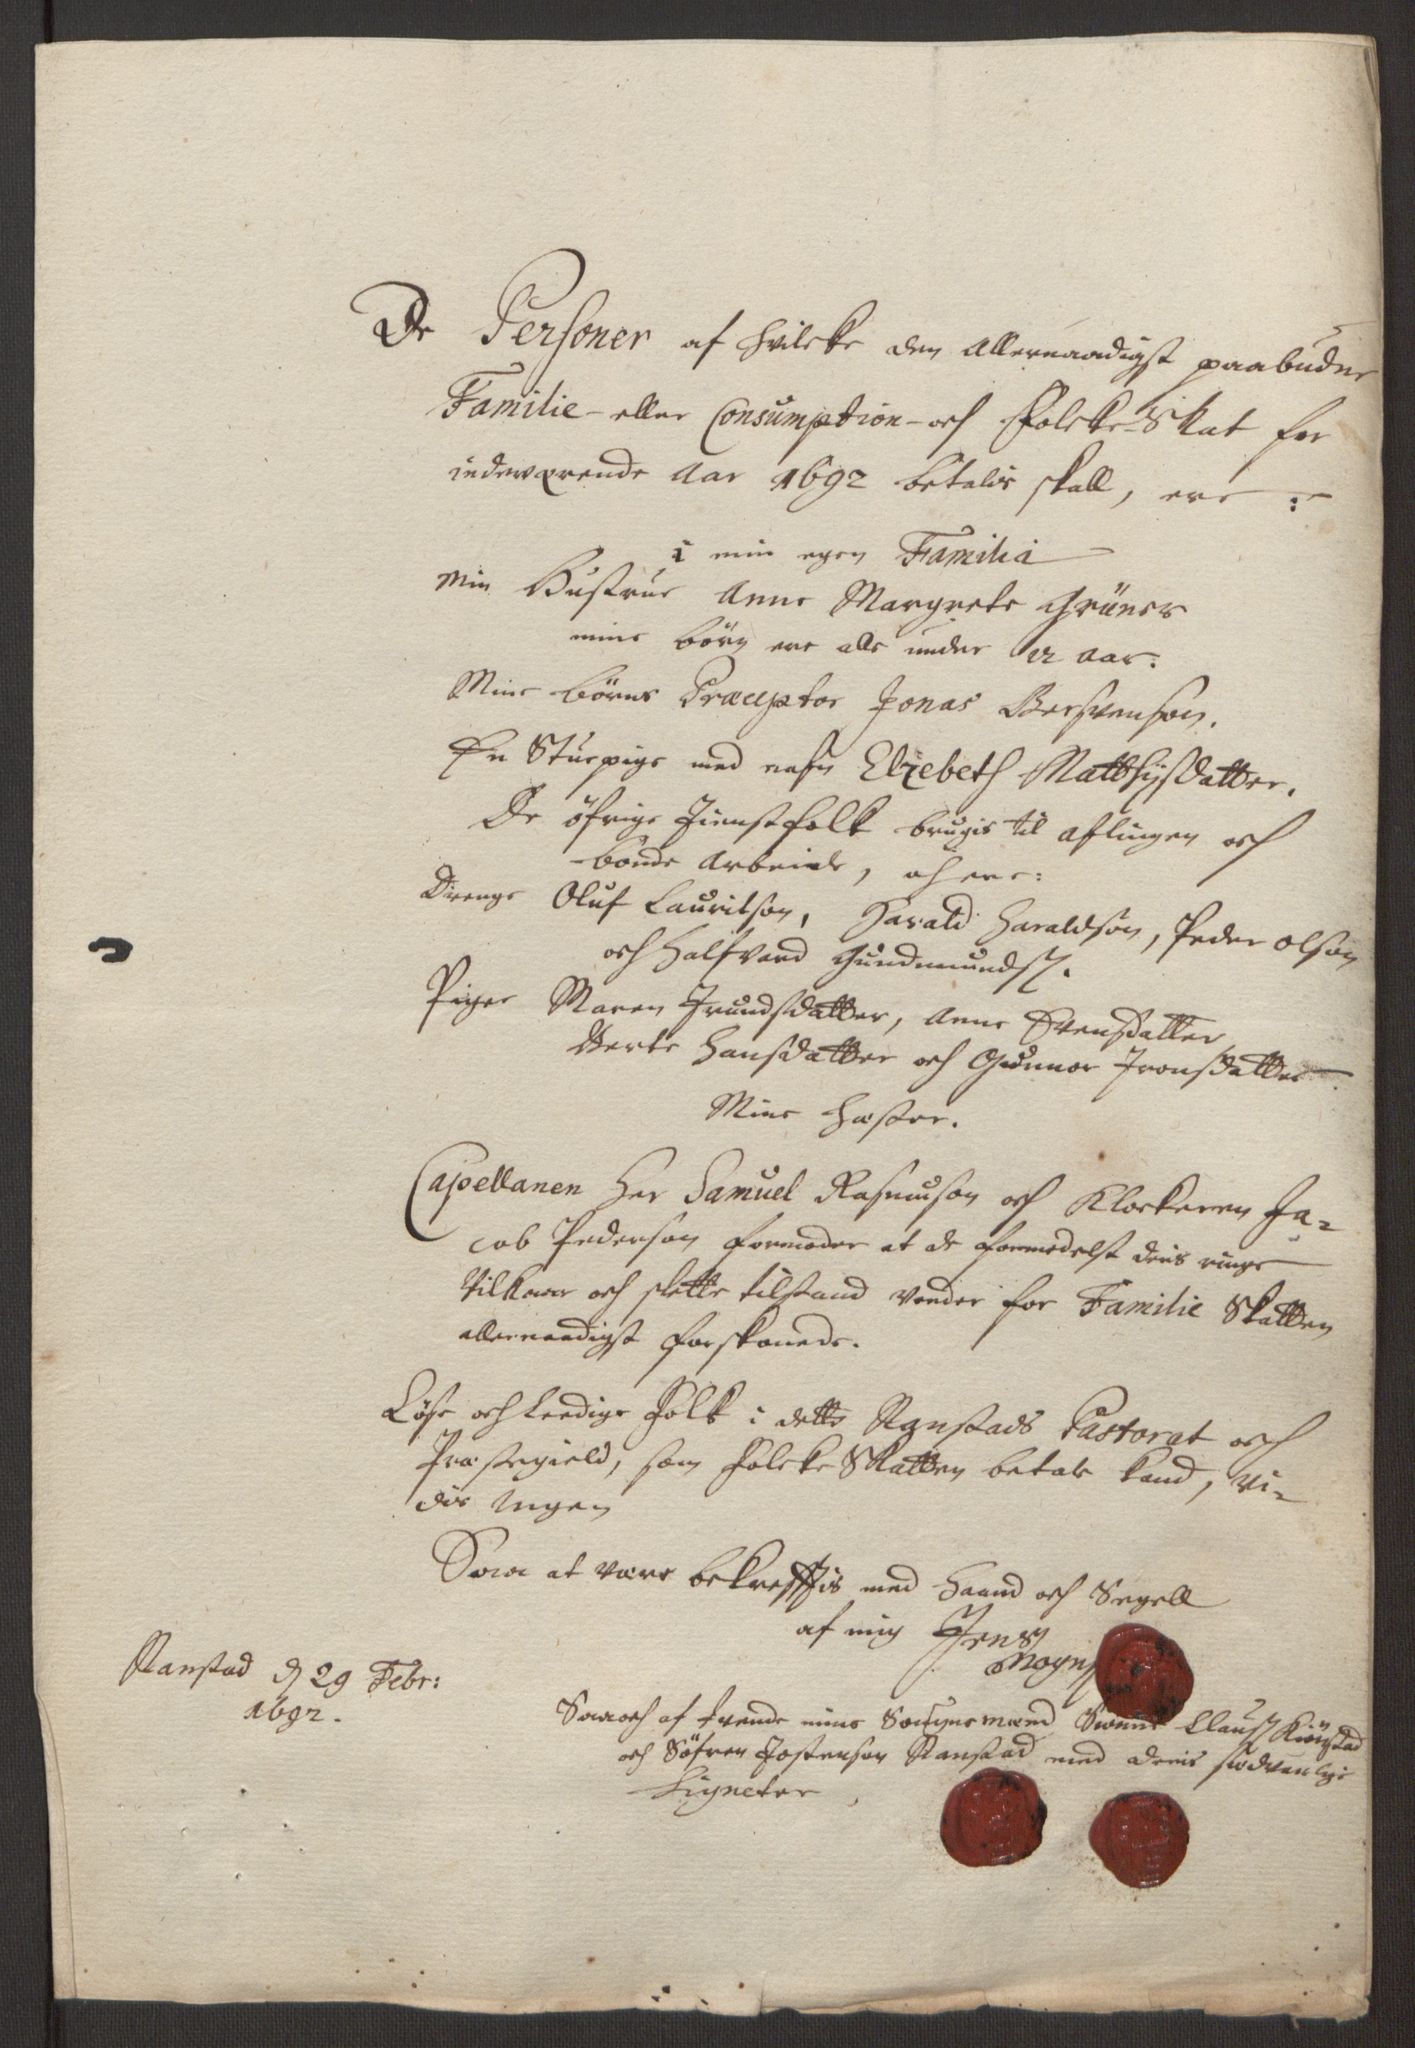 De Personer af hvilcke den Allernaadigst paabudne
Familie- eller Consumption- och Folcke-Skat for
indeværende Aar 1692 betalis skall, ere :
i min egen Familia
Min Hustrue Anne Margrete Grüners
mine börn ere alle under 12 aar:
Mine börns Præceptor Jonas Bersvenson.
En Stuepige med nafn Elzebeth Matthijsdatter.
De öfrige Tienstfolk brugis til aflingen och
bonde Arbeide, och ere:
Drenge Oluf Lauritson, Harald Haraldson, Peder Olson
och Halfvord Gundmunds:
Piger Maren Trundsdatter, Anne Svensdatter
Berte Hansdatter och Gunnor Tronsdatter
Mine Hæster.
Capellanen Her Samuel Rasmuson och Klockeren Ja-
cob Pederson formoder at de formedelst deris ringe
Vilkaar och slette tilstand vorder for Familie Skatten
allernaadigst forskonede.
Löse och Leedige Folk i dette Ranstads Pastorat och
Præstegield, som Folcke Skatten betale kand, vi-
dis Ingen
Saa at være bekreftis med Haand och Segell
af mig Jens
Mogns
Ranstad d 29 Febr:
1692.
Saa och af tvende mine Sougnemænd Claus
och Söfren Jostenson Ranstad med deris sædvanlige
Signeter